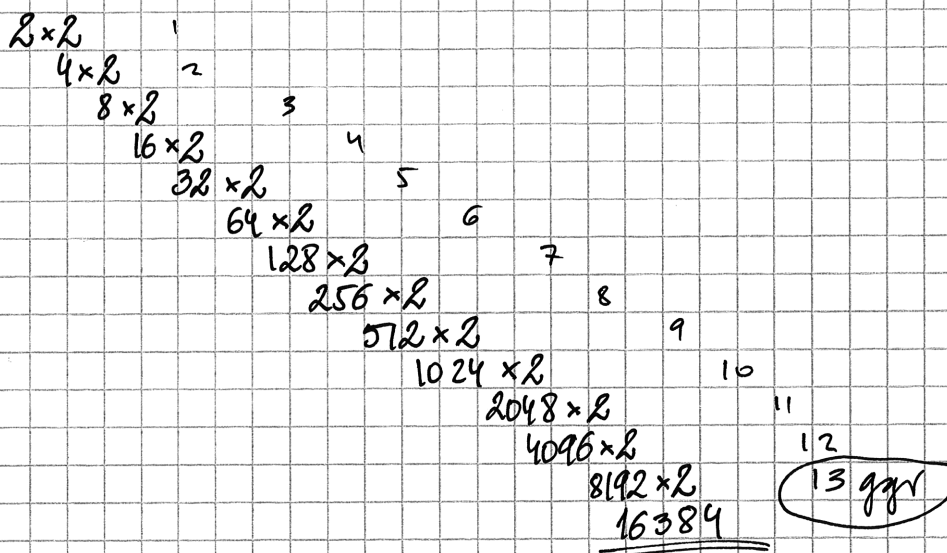 2×2 1
4×2 2
8×2 3
16×2 4
32×2 5
64×2 6
128×2 7
256×2 8
512×2 9
1024×2 10
2048×2 11
4096×2 12
8192×2 13 ggr
16384